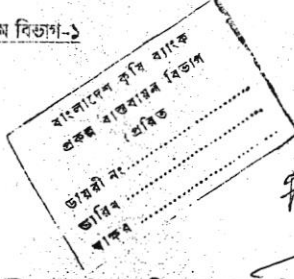 বিভাগ-১
বাংলাদেশ কৃষি ব্যাংক
প্রকল্প বাস্তবায়ন বিভাগ
প্রেরিত
ডায়রী নং..................
তারিখ..................
স্বাক্ষর..................